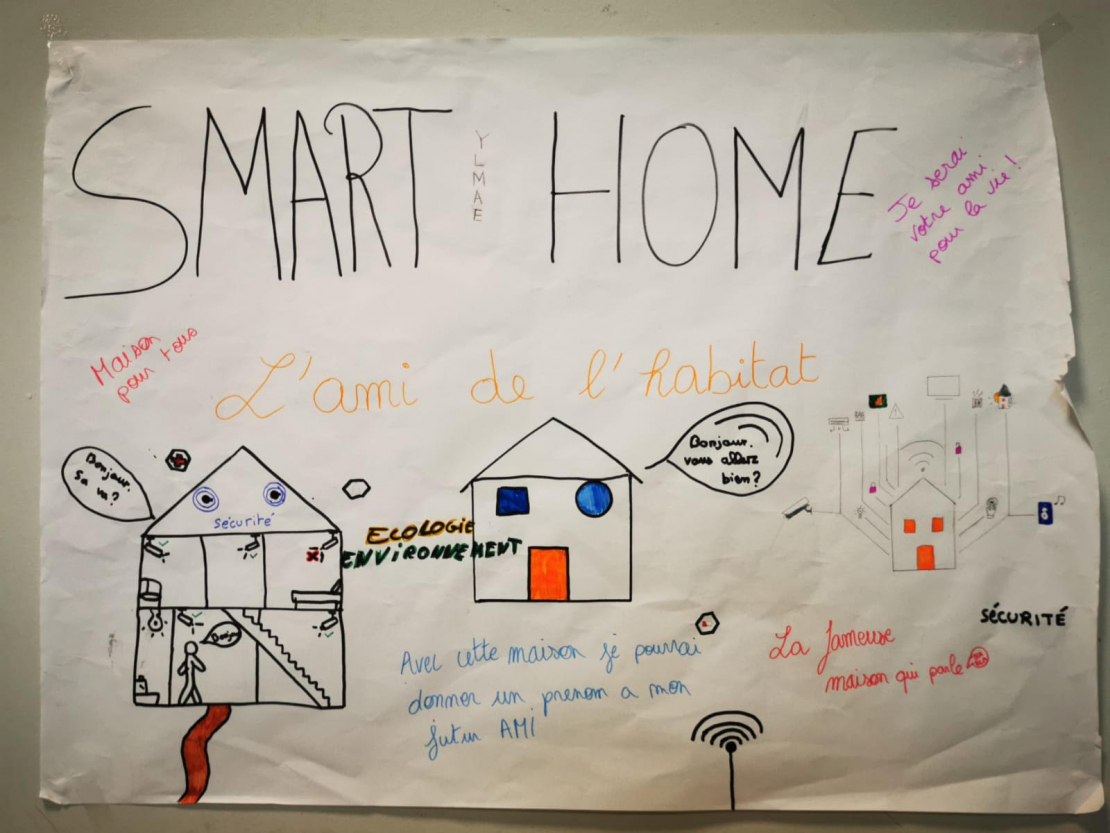 SMART HOME
YLMAE
Je serai
votre ami
pour la vie !
Maison
pour tous
L'ami de l'habitat
Bonjour.
Sa va ?
sécurité
Bonjour.
vous allez
bien ?
ECOLOGIE
ENVIRONNEMENT
SÉCURITÉ
Avec cette maison je pourrai
donner un prenom a mon
futur AMI
La fameuse
maison qui parle